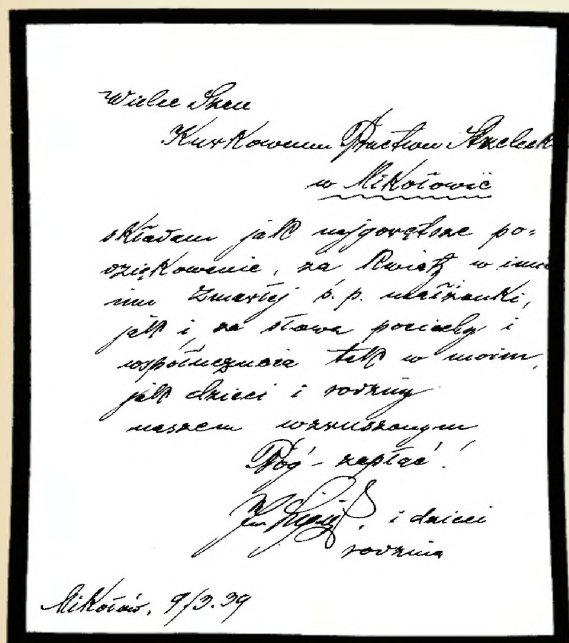 Wielce Szan
Kurkowemu Bractwu Strzeleck
w Mikołowie
składam jak najgorętsze po-
dziękowanie, za kwiaty w imie
niu zmarłej ś. p. małżonki,
jak i za słowa pociechy i
współczucia tak w moim,
jak dzieci i rodziny
naszem wzruszonym
Bóg - zapłać!
i dzieci
rodzina
Mikołów, 9/3.39